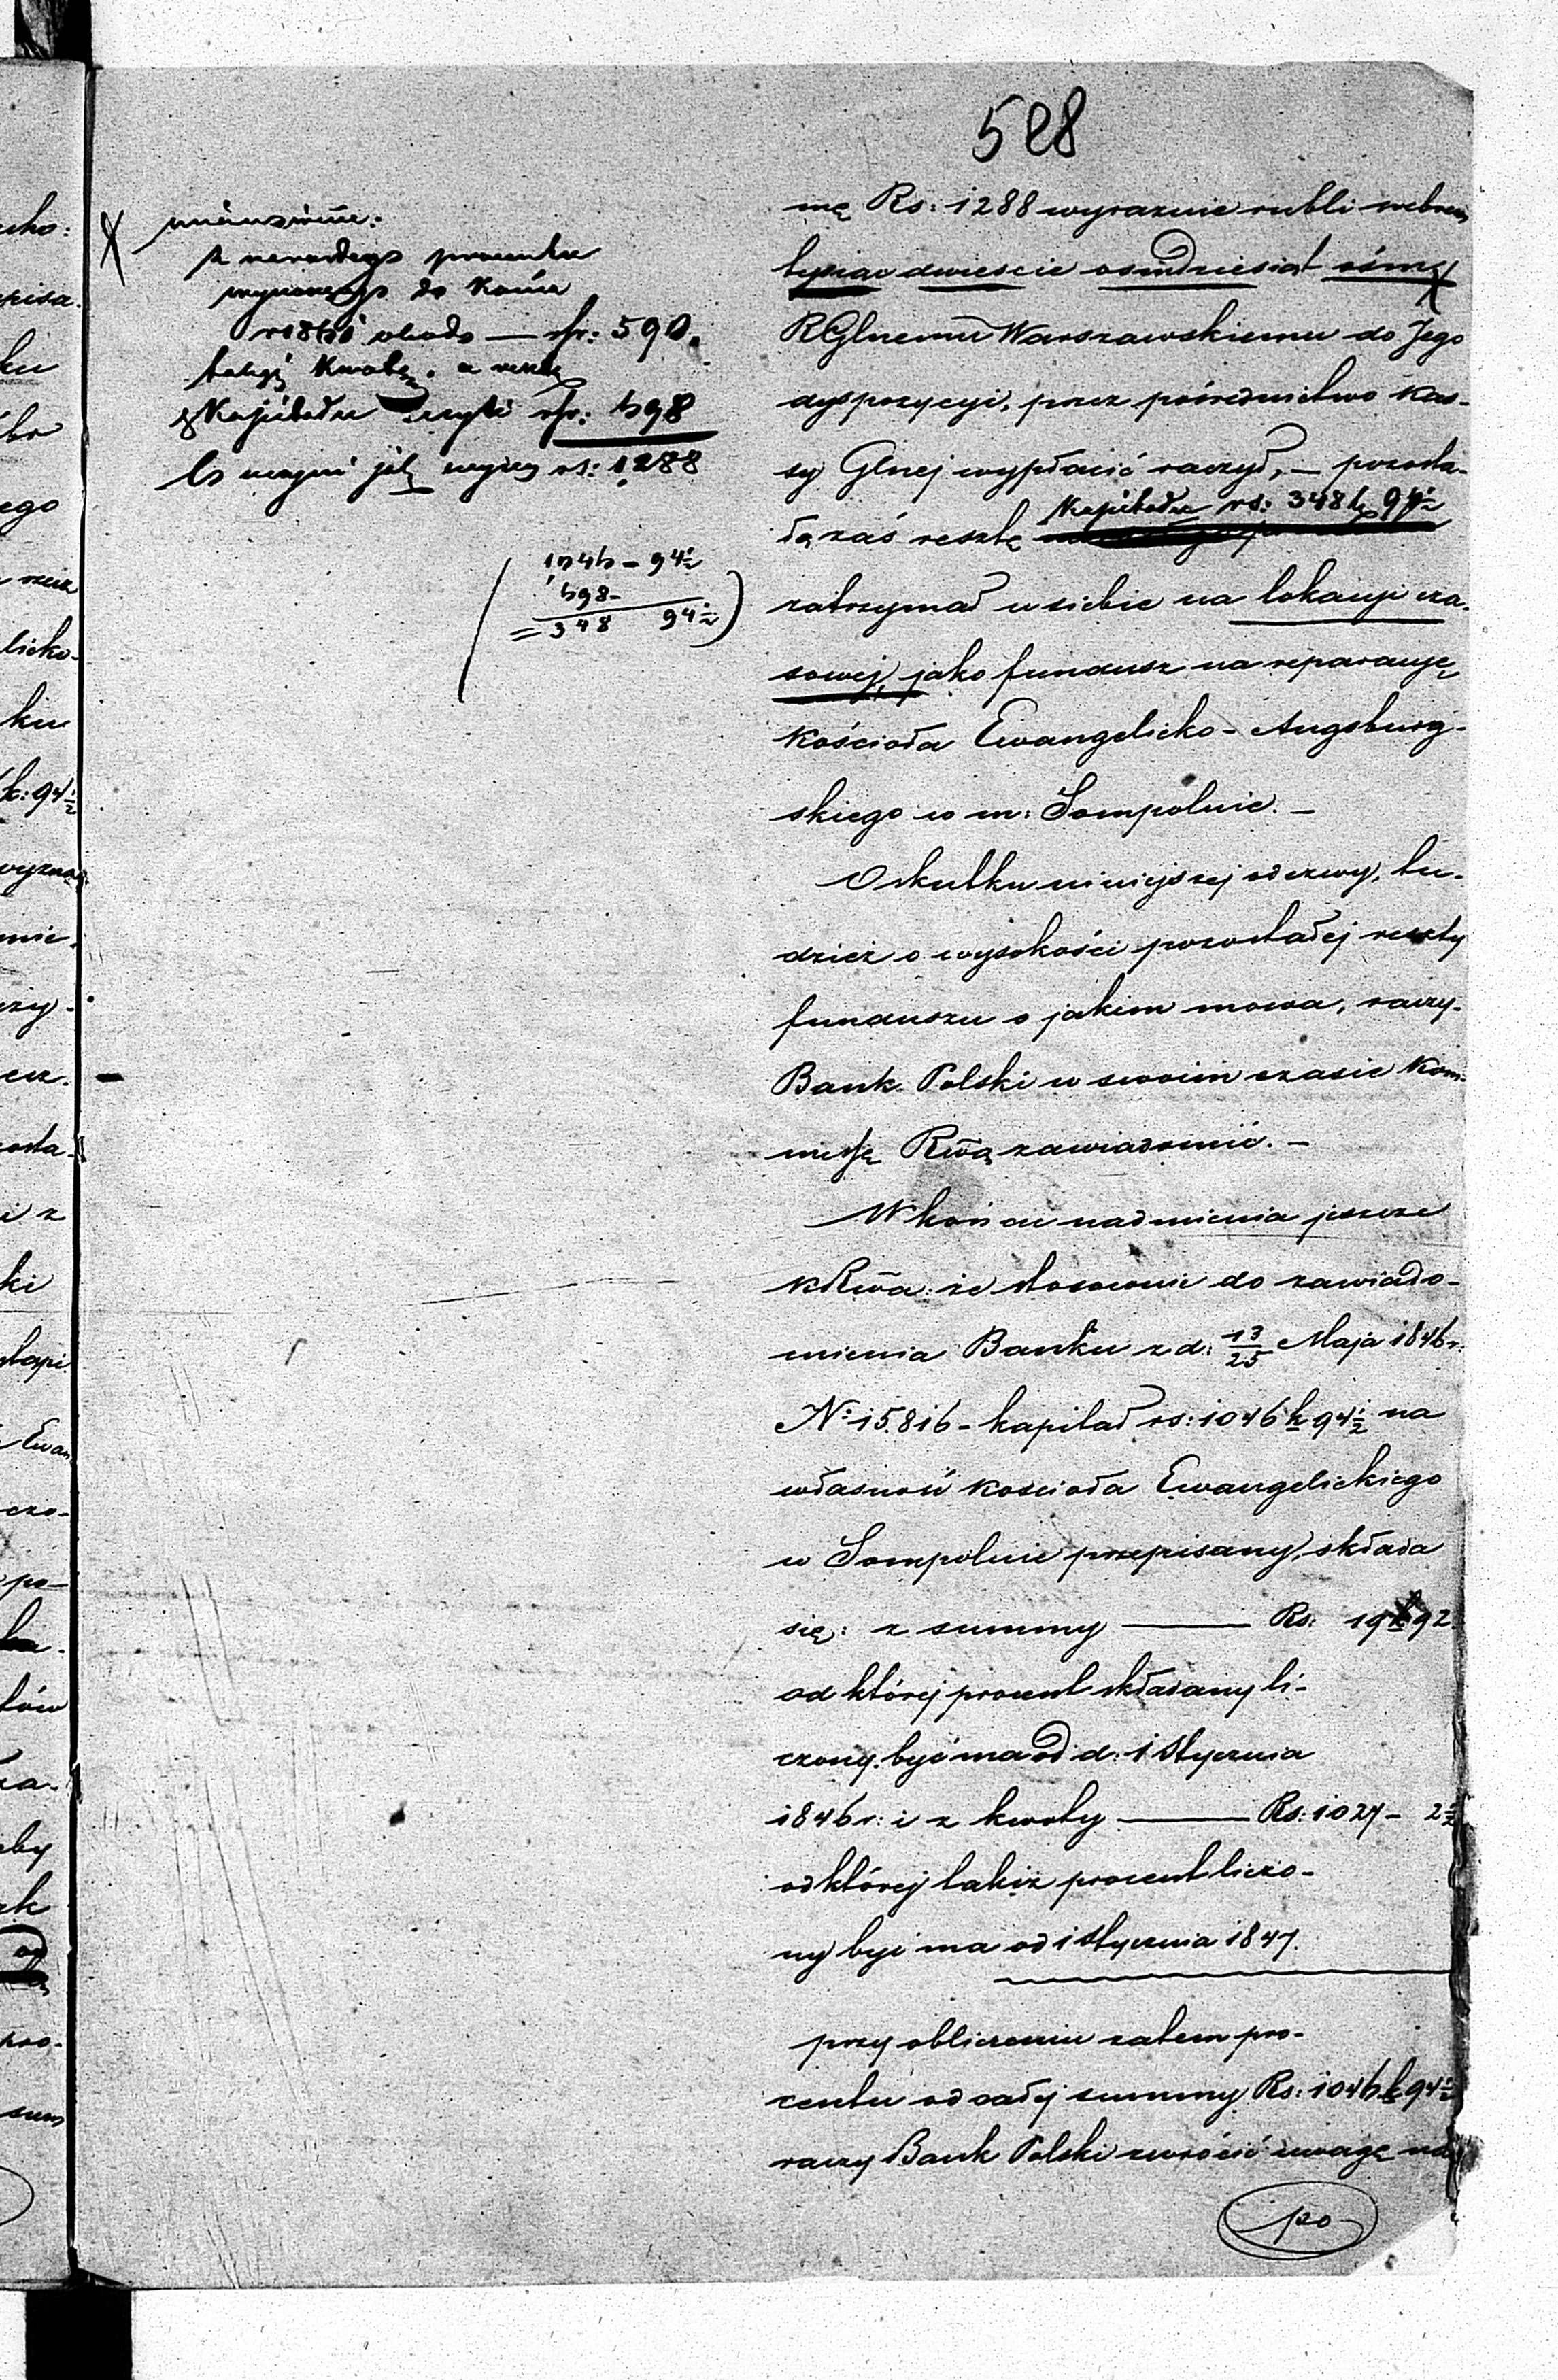 528
mianowicie:
z narosłego procentu
do końca
rs: 590.
kwotę, a resztę
z kapitału czyli rs: 698
Co uczyni jak wyżej rs: 1288
1046 - 94½
698 -
= 348 94½
mę Rs: 1288 wyraznie rubli srebrem
tysiac dwiescie osmdziesiąt ośm
RGlnemu Warszawskiemu do Jego
dyspozycyi, przez pośrednictwo Kas-
sy Glnej wypłacić raczył, – pozosta-
Kapitału rs: 348 k 94½
łą zaś resztę
zatrzymał u siebie na lokacyi cza-
sowej, jako fundusz na reparacyę
Kościoła Ewangelicko-Augsburg-
skiego w m: Sompolnie. –
O skutku niniejszej odezwy, tu-
dzież o wysokości pozostałej reszty
funduszu o jakim mowa, raczy
Bank Polski w swoim czasie Kom-
missyę Rwą zawiadomić. –
W końcu nadmienia jeszcze
KRwa: że stosownie do zawiado-
mienia Banku z d: 13/25 Maja 1846 r:
N: 15.816 – kapitał rs: 1046 k 94½ na
własność Kościoła Ewangelickiego
w Sompolnie przepisany, składa
się: z summy — Rs: 19 k 92.
od której procent składany li-
czony być ma od d: 1 Stycznia
1846 r: i z kwoty — Rs: 1027 – 2½
od której takiż procent liczo-
ny być ma od 1 Stycznia 1847.
przy obliczeniu zatem pro-
centu od całej summy Rs: 1046 k 94½
raczy Bank Polski zwrócić uwagę na
po